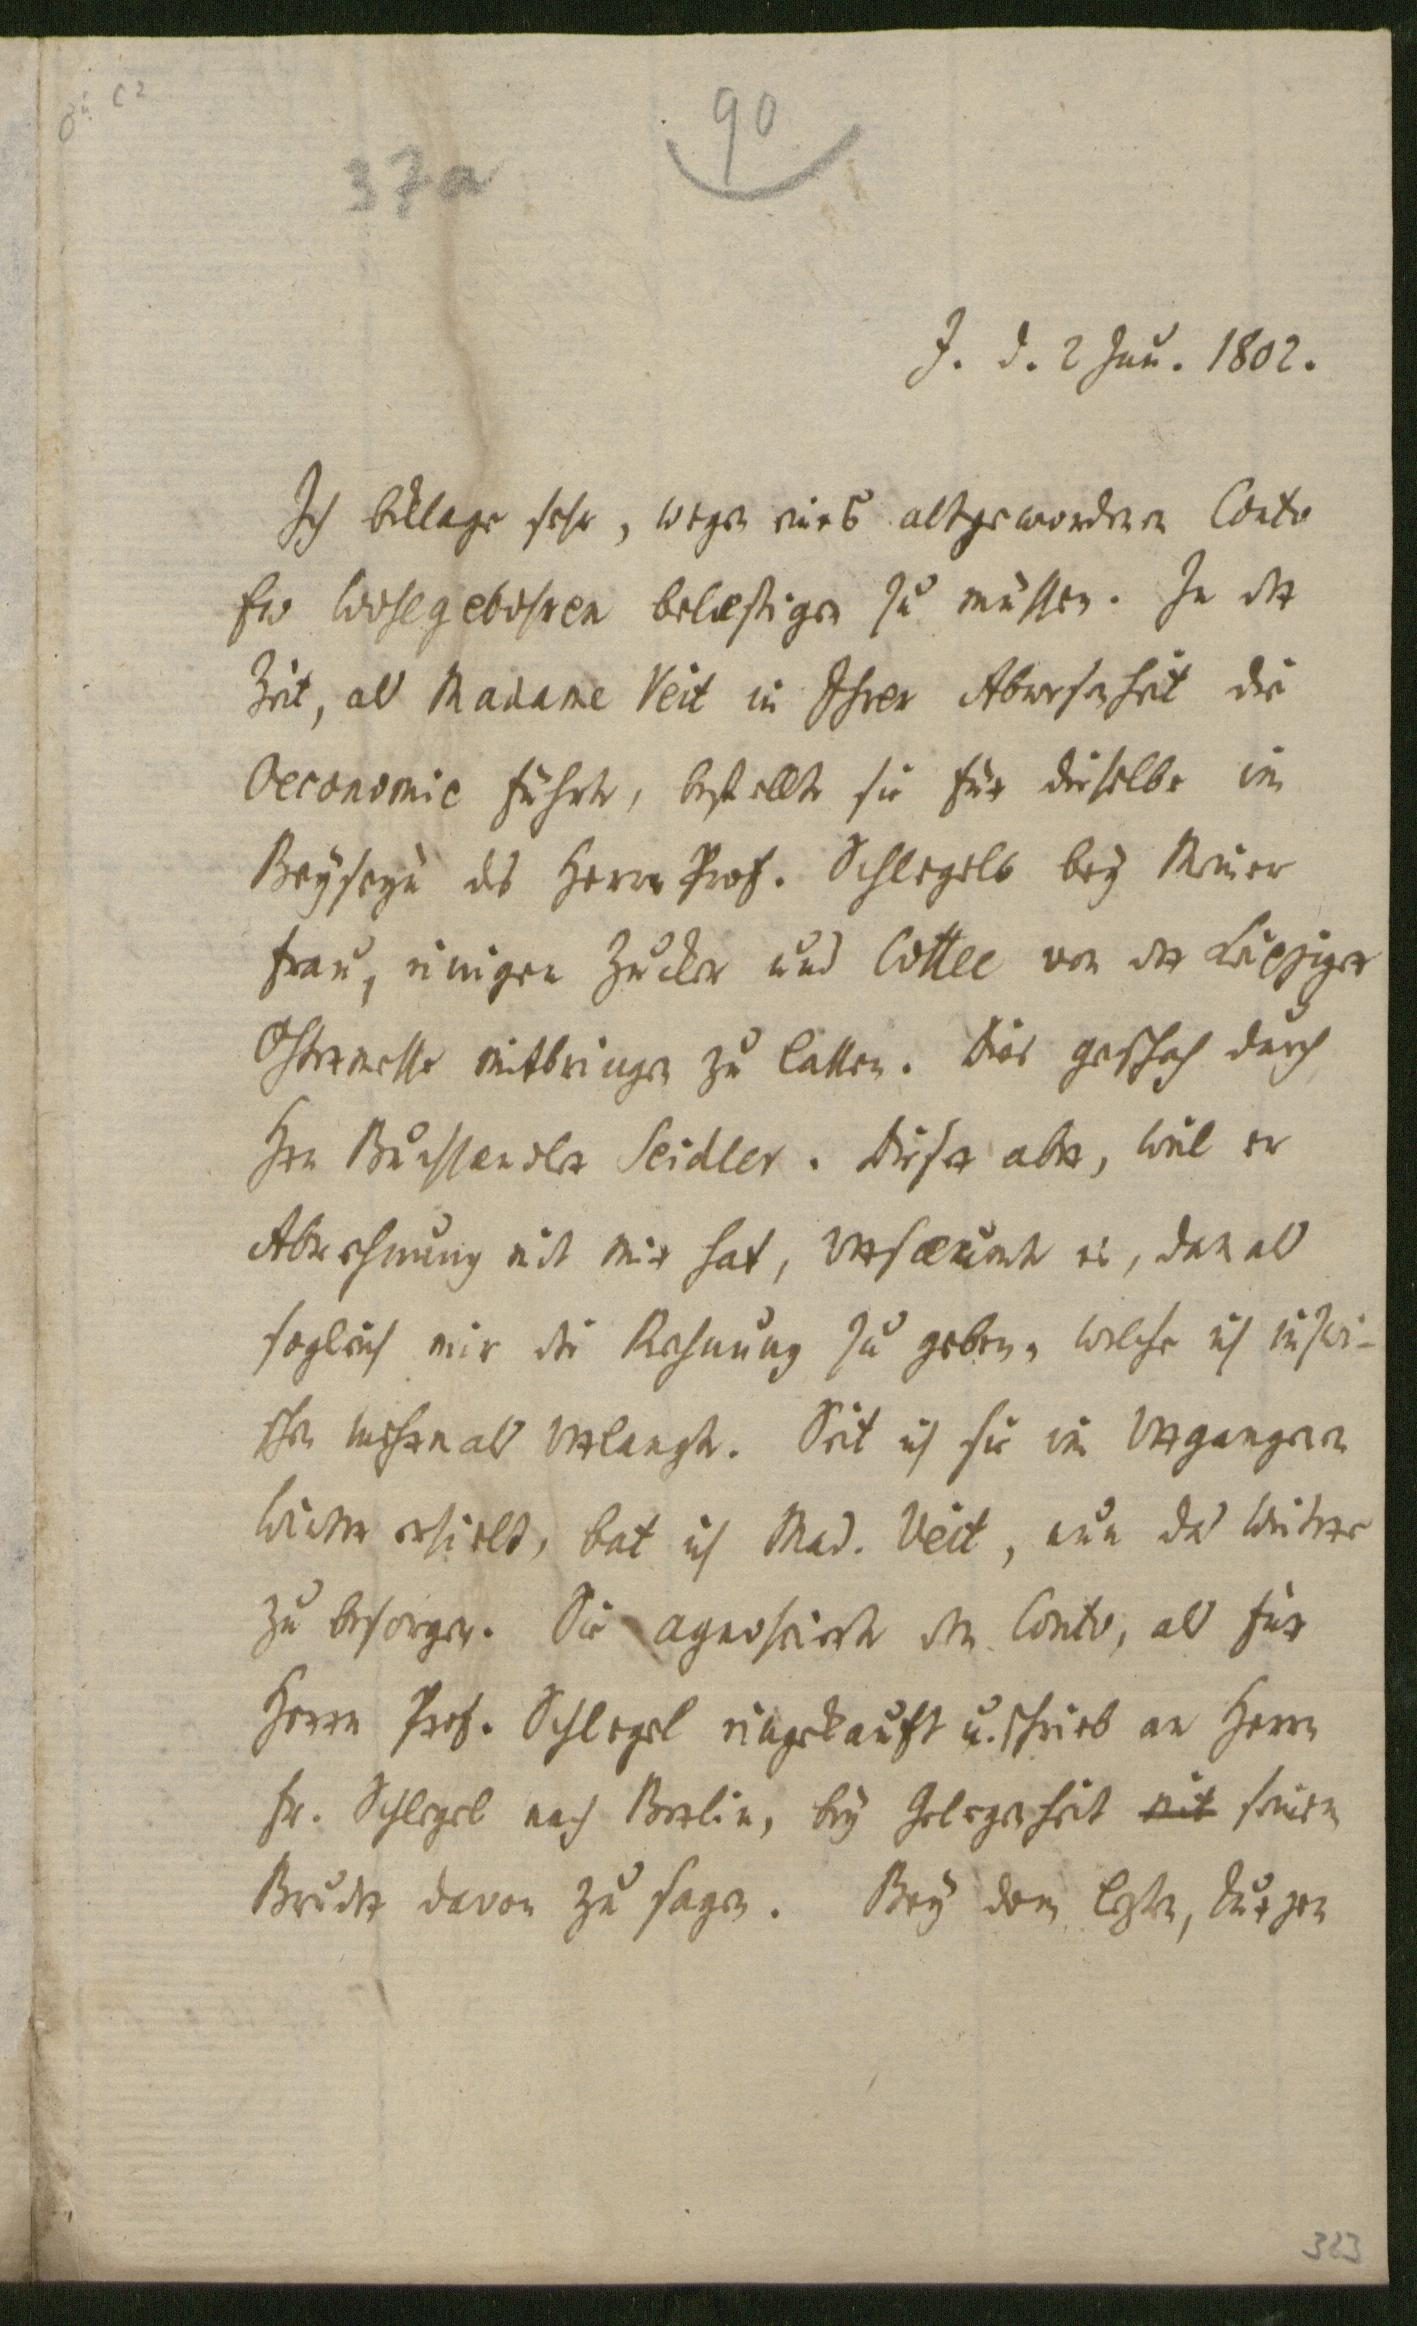 90
37a
J. d. 2 Jun. 1802.
Ich beklage sehr, wegen eines altgewordenen Conto
Ew Wohlgebohren belæstigen zu müssen. In der
Zeit, als Madame Veit in Ihrer Abwesenheit die
Oeconomie führte, bestellte sie für dieselbe im
Beyseyn des Herrn Prof. Schlegels bey Meiner
Frau, einigen Zucker und Coffee von der Leipziger
Ostermesse mitbringen zu lassen. Dies geschah durch
Hrn Buchhandler Seidler. Dieser aber, weil er
Abrechnung mit mir hat, versæumte es, damals
sogleich mir die Rechnung zu geben, welche ich inzwi-
schen mehrmals verlangte. Seit ich sie im vergangenen
Winter erhielt, bat ich Mad. Veit, nun das Weitere
zu besorgen. Sie agnoscirte den Conto, als für
Herrn Prof. Schlegel eingekauft u. schrieb an Herrn
Fr. Schlegel nach Berlin, bey Gelegenheit mit seinem
Bruder davon zu sagen. Bey dem letzten, kurzen
383